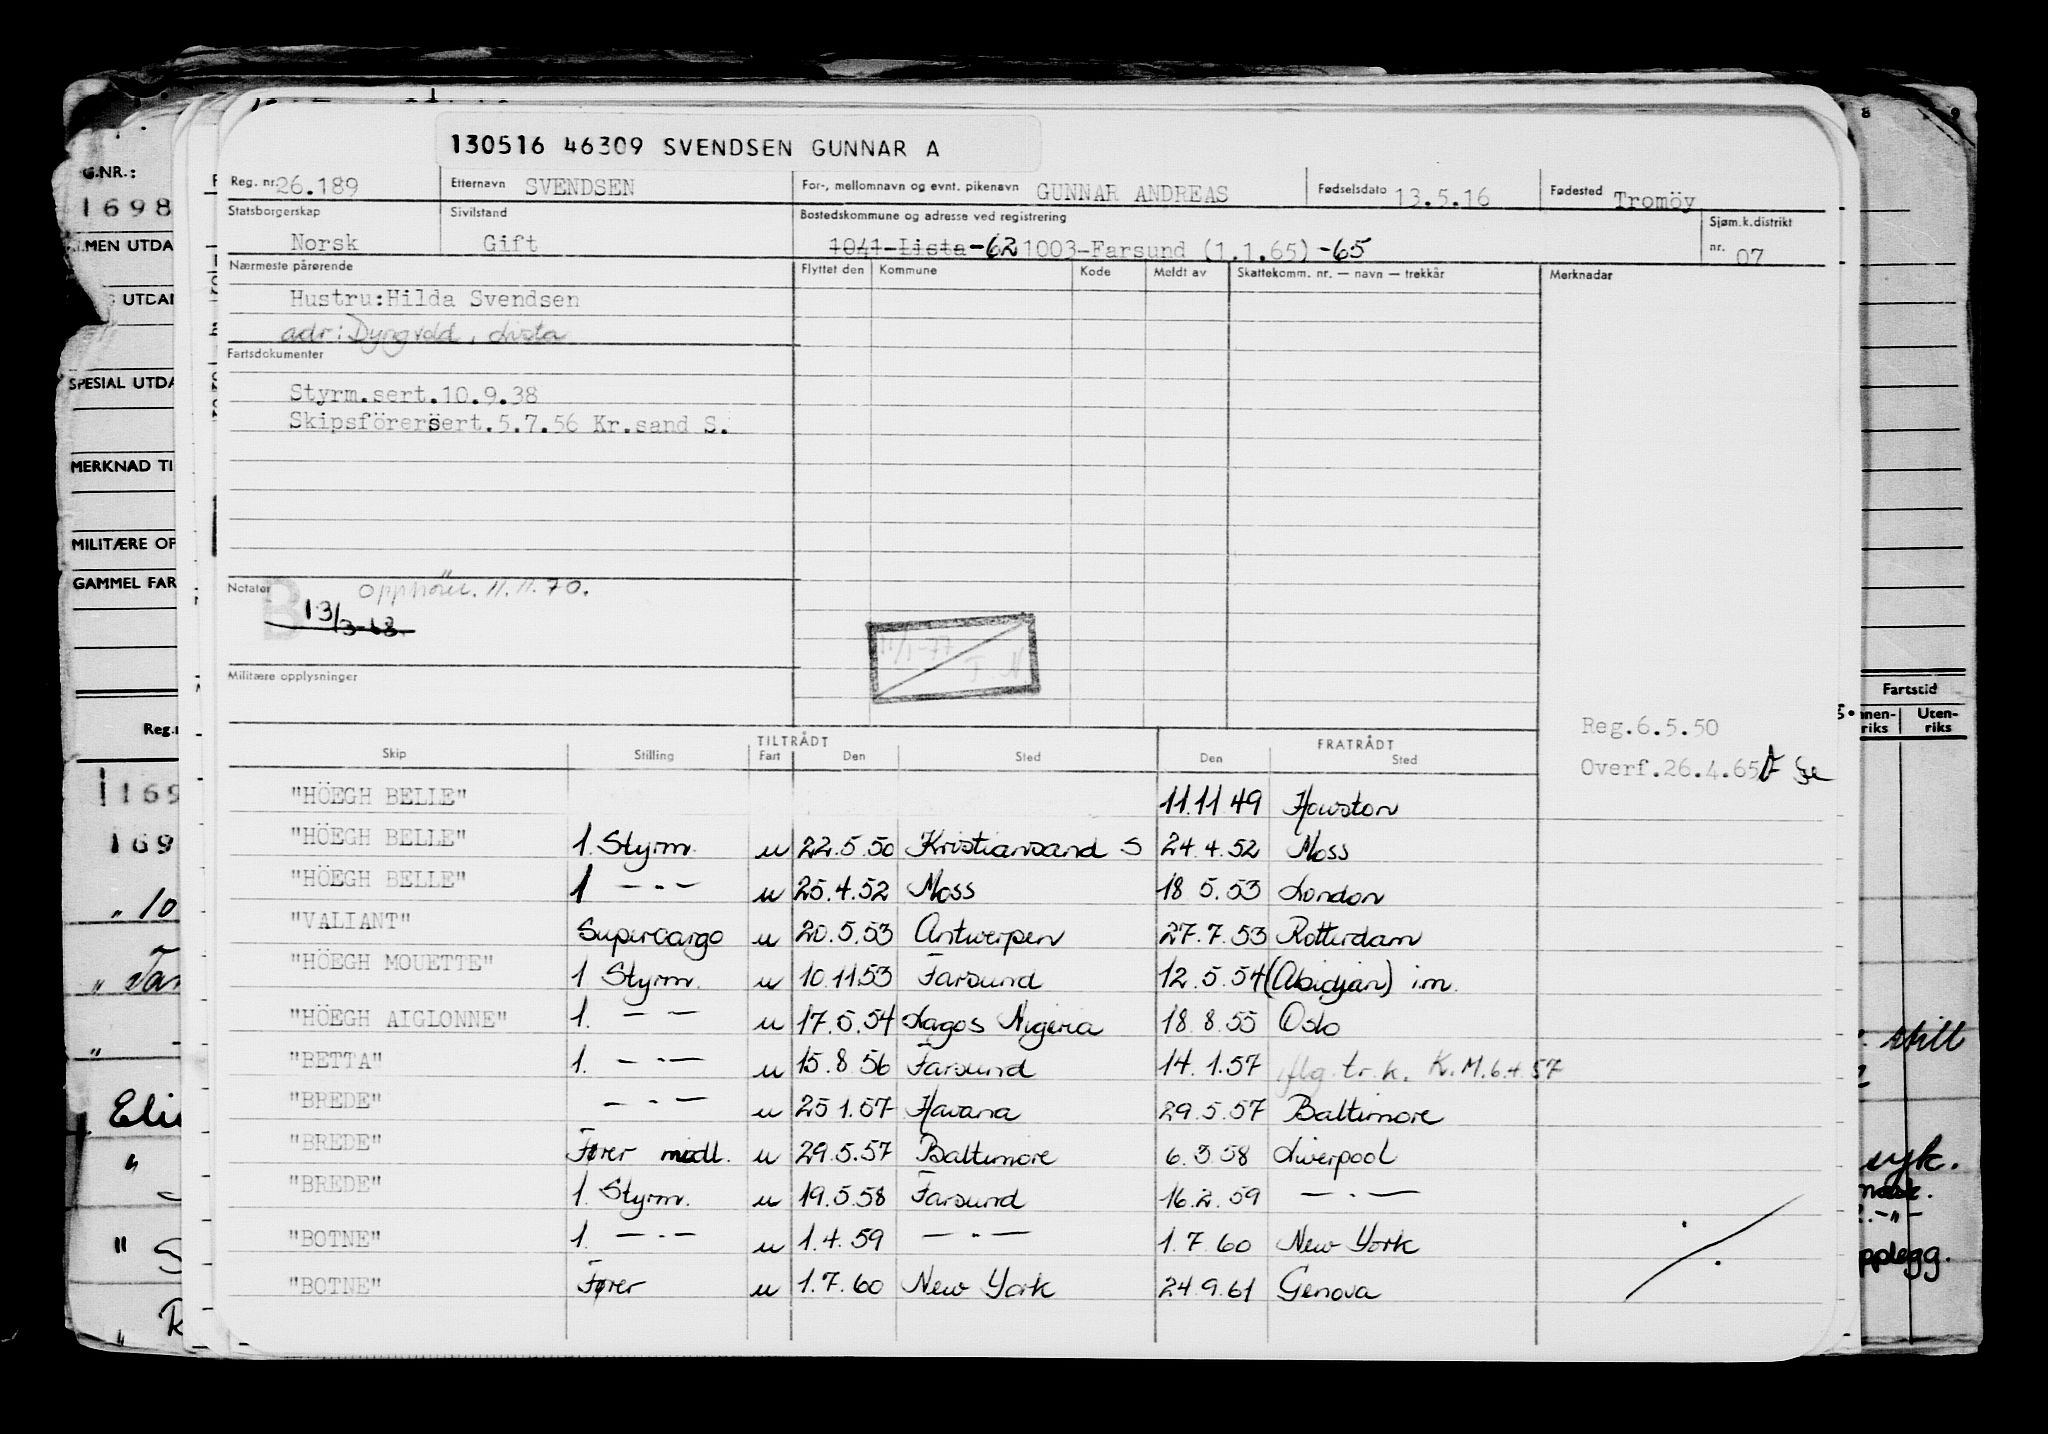 130516 46309 SVENDSEN GUNNAR A
Reg. nr. 26.189 Etternavn SVENDSEN For-, mellomnavn og evnt. pikenavn GUNNAR ANDREAS Fødselsdato 13.5.16 Fødested Tromöy
Statsborgerskap Sivilstand Bostedskommune og adresse ved registrering Sjøm.k.distrikt
Norsk Gift 1041-Lista-62 1003-Farsund (1.1.65)-65 nr. 07
Nærmeste pårørende Flyttet den Kommune Kode Meldt av Skattekomm. nr. — navn — trekkår Merknadar
Hustru:Hilda Svendsen
adr: Dyngvold, Lista
Fartsdokumenter
Styrm.sert.10.9.38
Skipsförersert.5.7.56 Kr.sand S.
Notater opphører 11.11.70.
B 13/3-68
Militære opplysninger
Reg.6.5.50
Overf.26.4.65
TILTRÅDT FRATRÅDT
Skip Stilling Fart Den Sted Den Sted
"HÖEGH BELLE" 11.11 49 Houston
"HÖEGH BELLE" 1. Styrm. u 22.5.50 Kristiansand S 24.4.52 Moss
"HÖEGH BELLE" 1 —·— u 25.4.52 Moss 18 5.53 London
"VALIANT" Supercargo u 20.5.53 Antwerpen 27.7.53 Rotterdam
"HÖEGH MOUETTE" 1 Styrm. u 10.11.53 Farsund 12.5.54 (Abidjan) i.m.
"HÖEGH AIGLONNE" 1. — — u 17.5.54 Lagos Nigeria 18.8.55 Oslo
"BETTA" 1. —·— u 15.8 56 Farsund 14.1.57 iflg. tr. k. K.M.6.4.57
"BREDE" —·— u 25 1.57 Havana 29.5.57 Baltimore
"BREDE" Fører midl. u 29.5.57 Baltimore 6.3.58 Liverpool
"BREDE" 1. Styrm. u 19.5.58 Farsund 16.2.59 —·—
"BOTNE" 1. —·— u 1.4.59 —·— 1.7 60 New York
"BOTNE" Fører u 1.7.60 New York 24.9.61 Genova
G.NR.:
1698
UTDA
UTDA
SPESIAL UTDA
MERKNAD TI
MILITÆRE OP
GAMMEL FAR
Reg.
169
169
" 10
"
Eli
"
"
"
8 9
Fartstid
nnen-riks Uten-riks
still
syk.
pplegg.